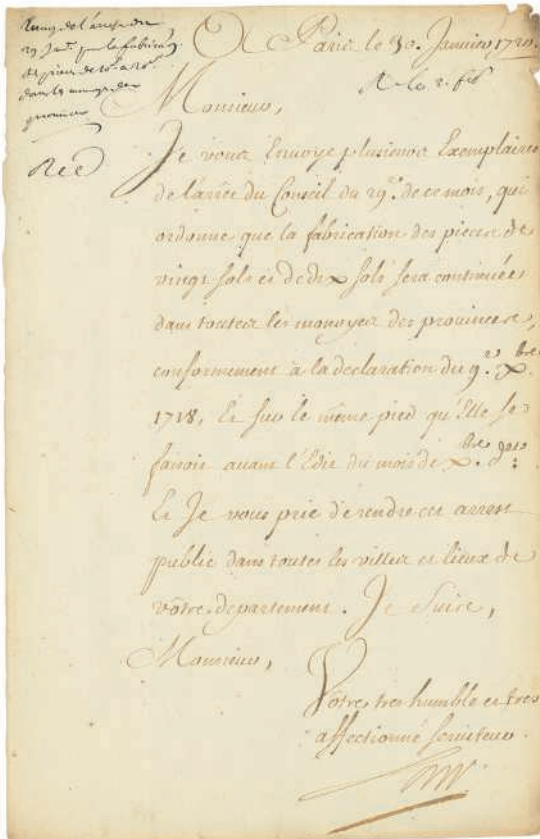 Envoy de l'arrest du
29 Janr. pr la fabricaõn
des pieces de 20s. et 10s.
dans les monoyes des
provinces
A Paris le 30. Janvier 1720.
R le 2. feb
Monsieur,
Je vous Envoye plusieurs Exemplaires
de l'arrêt du Conseil du 29e. de ce mois, qui
ordonne que la fabrication des pieces de
vingt sols et de dix sols sera continuée
dans toutes les monoyes des provinces,
conformement à la declaration du 9e. Xbre.
1718, Et sur le même pied qu'Elle se
faisoit avant l'Edit du mois de Xbre. der:
Et Je vous prie de rendre cet arrest
public dans toutes les villes et lieux de
vôtre departement. Je Suis,
Monsieur,
Vôtre tres humble et tres
affectionné serviteur.